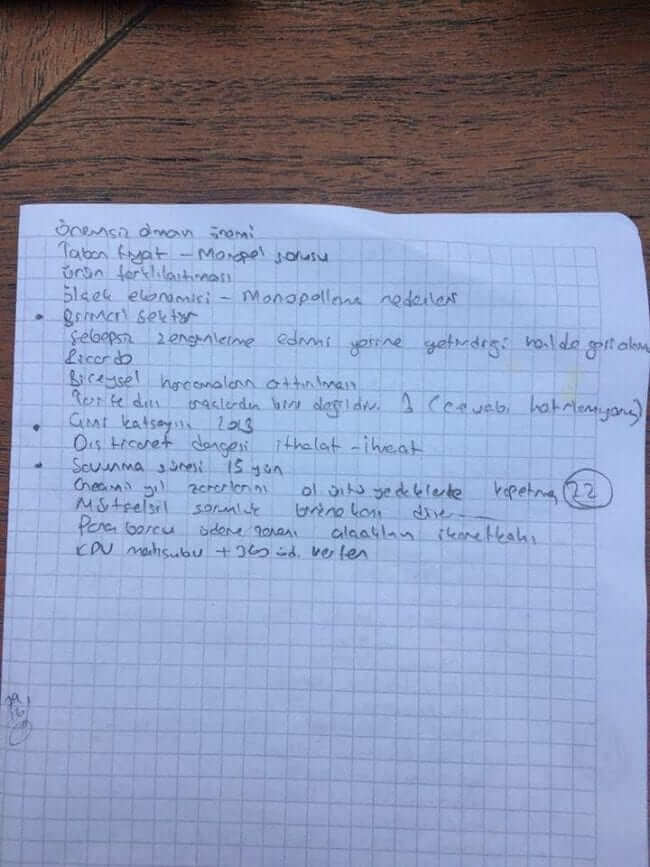 Önemsiz olman önemi
Taban fiyat - Monopol sorusu
Ürün farklılaştırması
Ölçek ekonomisi - Monopolleme nedenleri
• Birincil sektör
Sebepsiz zenginleşme edimi yerine getirdiği halde geri alma
Ricardo
Bireysel harcamaların arttırılması
dışı araçlardan biri değildir. (cevabı hatırlamıyorum)
• Gini katsayısı
Dış ticaret dengesi ithalat - ihracat
• Savunma süresi 15 gün
Geçmiş yıl zararlarını yedeklerle kapatma 22
Müteselsil sorumluluk
Para borcu ödeme zamanı alacaklının ikametgahı
KDV mahsubu + 360